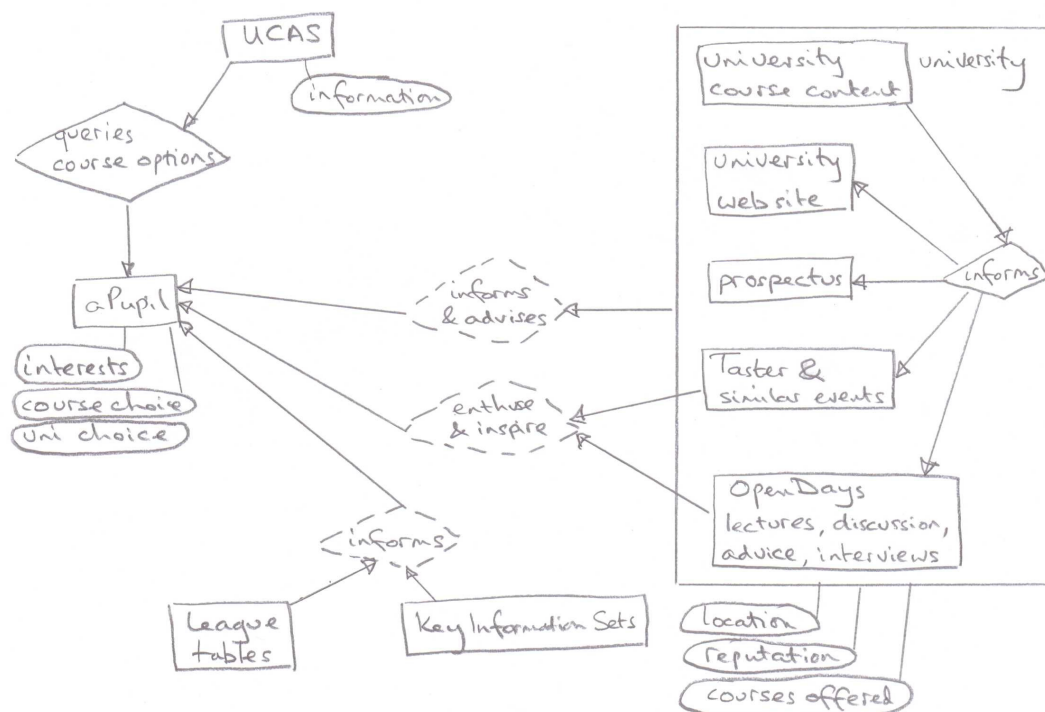 UCAS
information
queries
course options
aPupil
interests
course choice
uni choice
informs
& advises
enthuse
& inspire
informs
League
tables
Key Information Sets
university
university
course content
university
website
prospectus
informs
Taster &
similar events
OpenDays
lectures, discussion,
advice, interviews
location
reputation
courses offered